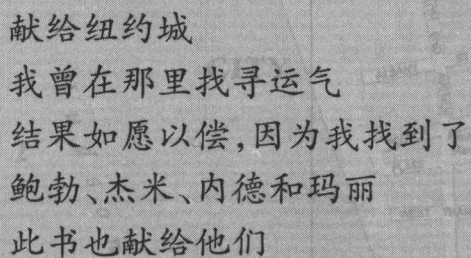 献给纽约城
我曾在那里找寻运气
结果如愿以偿,因为我找到了
鲍勃、杰米、内德和玛丽
此书也献给他们